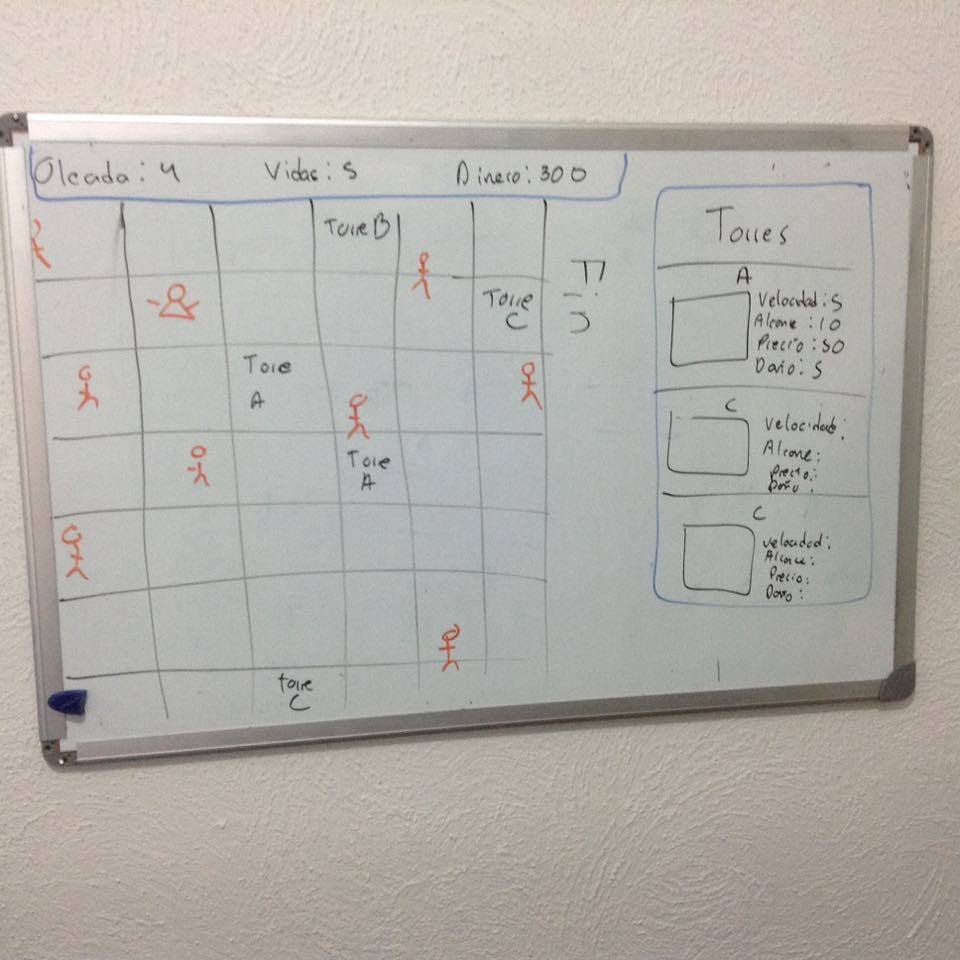 Oleada: 4 Vidas: 5 Dinero: 300
Torre B
Torre
C
Torre
A
Torre
A
torre
C
Torres
A
Velocidad: 5
Alcance: 10
Precio: 50
Daño: 5
C
Velocidad:
Alcance:
Precio:
Daño:
C
Velocidad:
Alcance:
Precio:
Daño: